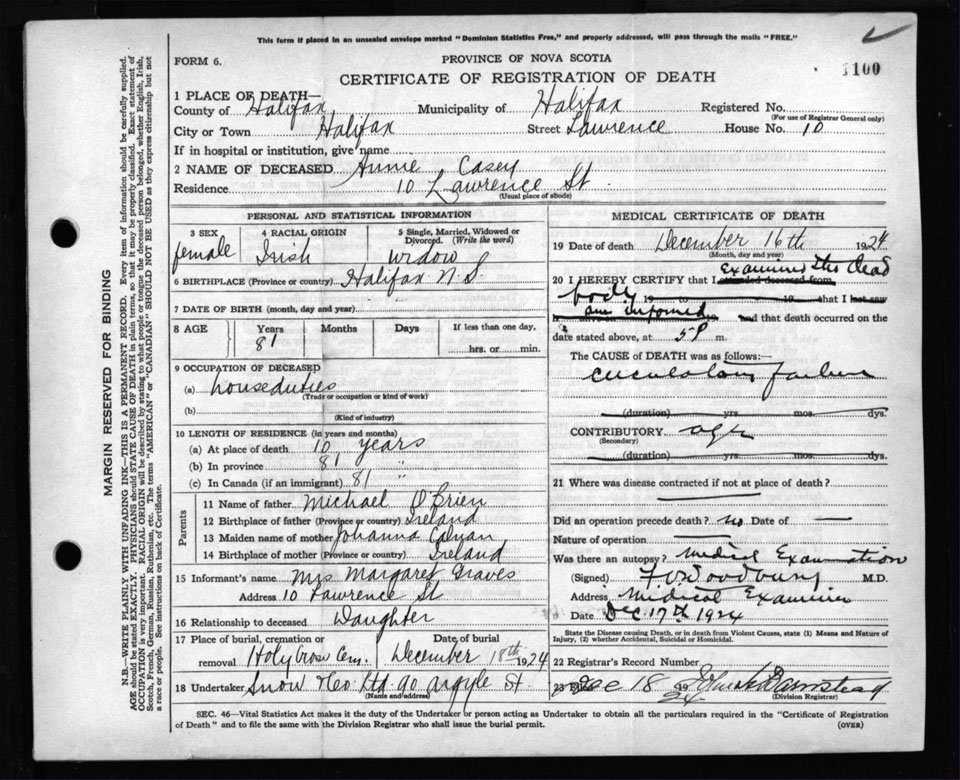 This form if placed in an unsealed envelope marked "Dominion Statistics Free," and properly addressed, will pass through the mails "FREE."
FORM 6.
PROVINCE OF NOVA SCOTIA
CERTIFICATE OF REGISTRATION OF DEATH
1100
1 PLACE OF DEATH—
County of Halifax Municipality of Halifax Registered No.
(For use of Registrar General only)
City or Town Halifax Street Lawrence House No. 10
If in hospital or institution, give name
2 NAME OF DECEASED Annie Casey
Residence 10 Lawrence St
(Usual place of abode)
PERSONAL AND STATISTICAL INFORMATION
3 SEX 4 RACIAL ORIGIN 5 Single, Married, Widowed or Divorced. (Write the word)
female Irish widow
6 BIRTHPLACE (Province or country) Halifax N.S.
7 DATE OF BIRTH (month, day and year)
8 AGE Years Months Days If less than one day,
81 hrs. or min.
9 OCCUPATION OF DECEASED
(a) housedutie​s
(Trade or occupation or kind of work)
(b)
(Kind of industry)
10 LENGTH OF RESIDENCE (in years and months)
(a) At place of death 10 years
(b) In province 81 "
(c) In Canada (if an immigrant) 81
Parents
11 Name of father Michael O'Brien
12 Birthplace of father (Province or country) Ireland
13 Maiden name of mother Johanna
14 Birthplace of mother (Province or country) Ireland
15 Informant's name Mrs Margaret Graves
Address 10 Lawrence St
16 Relationship to deceased Daughter
17 Place of burial, cremation or removal Date of burial
Holy Cross Cem. December 18th 1924
18 Undertaker Snow & Co Ltd 90 Argyle St.
(Name and address)
MEDICAL CERTIFICATE OF DEATH
19 Date of death December 16th 1924
(Month, day and year)
20 I HEREBY CERTIFY that I attended deceased from examined the dead
body 19 to 19 that I last saw
am informed 19 and that death occurred on the
date stated above, at 5 P m.
The CAUSE of DEATH was as follows:—
circulatory failure
(duration) yrs. mos. dys.
CONTRIBUTORY age
(Secondary)
(duration) yrs. mos. dys.
21 Where was disease contracted if not at place of death?
Did an operation precede death? no Date of —
Nature of operation —
Was there an autopsy? Medical Examination
(Signed) F.V. Woodbury M.D.
Address Medical Examiner
Date Dec. 17th 1924
State the Disease causing Death, or in death from Violent Causes, state (1) Means and Nature of Injury, (2) whether Accidental, Suicidal or Homicidal.
22 Registrar's Record Number
23 Filed Dec 18 1924
(Division Registrar)
SEC. 46—Vital Statistics Act makes it the duty of the Undertaker or person acting as Undertaker to obtain all the particulars required in the "Certificate of Registration
of Death" and to file the same with the Division Registrar who shall issue the burial permit.
(OVER)
MARGIN RESERVED FOR BINDING
N.B.—WRITE PLAINLY WITH UNFADING INK—THIS IS A PERMANENT RECORD. Every item of information should be carefully supplied.
AGE should be stated EXACTLY. PHYSICIANS should STATE CAUSE OF DEATH in plain terms, so that it may be properly classified. Exact statement of
OCCUPATION is very important. RACIAL ORIGIN will be described by stating to what people or tongue the deceased person belonged, whether English, Irish,
Scotch, French, German, Russian, Ruthenian, etc. The terms "AMERICAN" or "CANADIAN" SHOULD NOT BE USED as they express citizenship but not
a race or people. See instructions on back of Certificate.